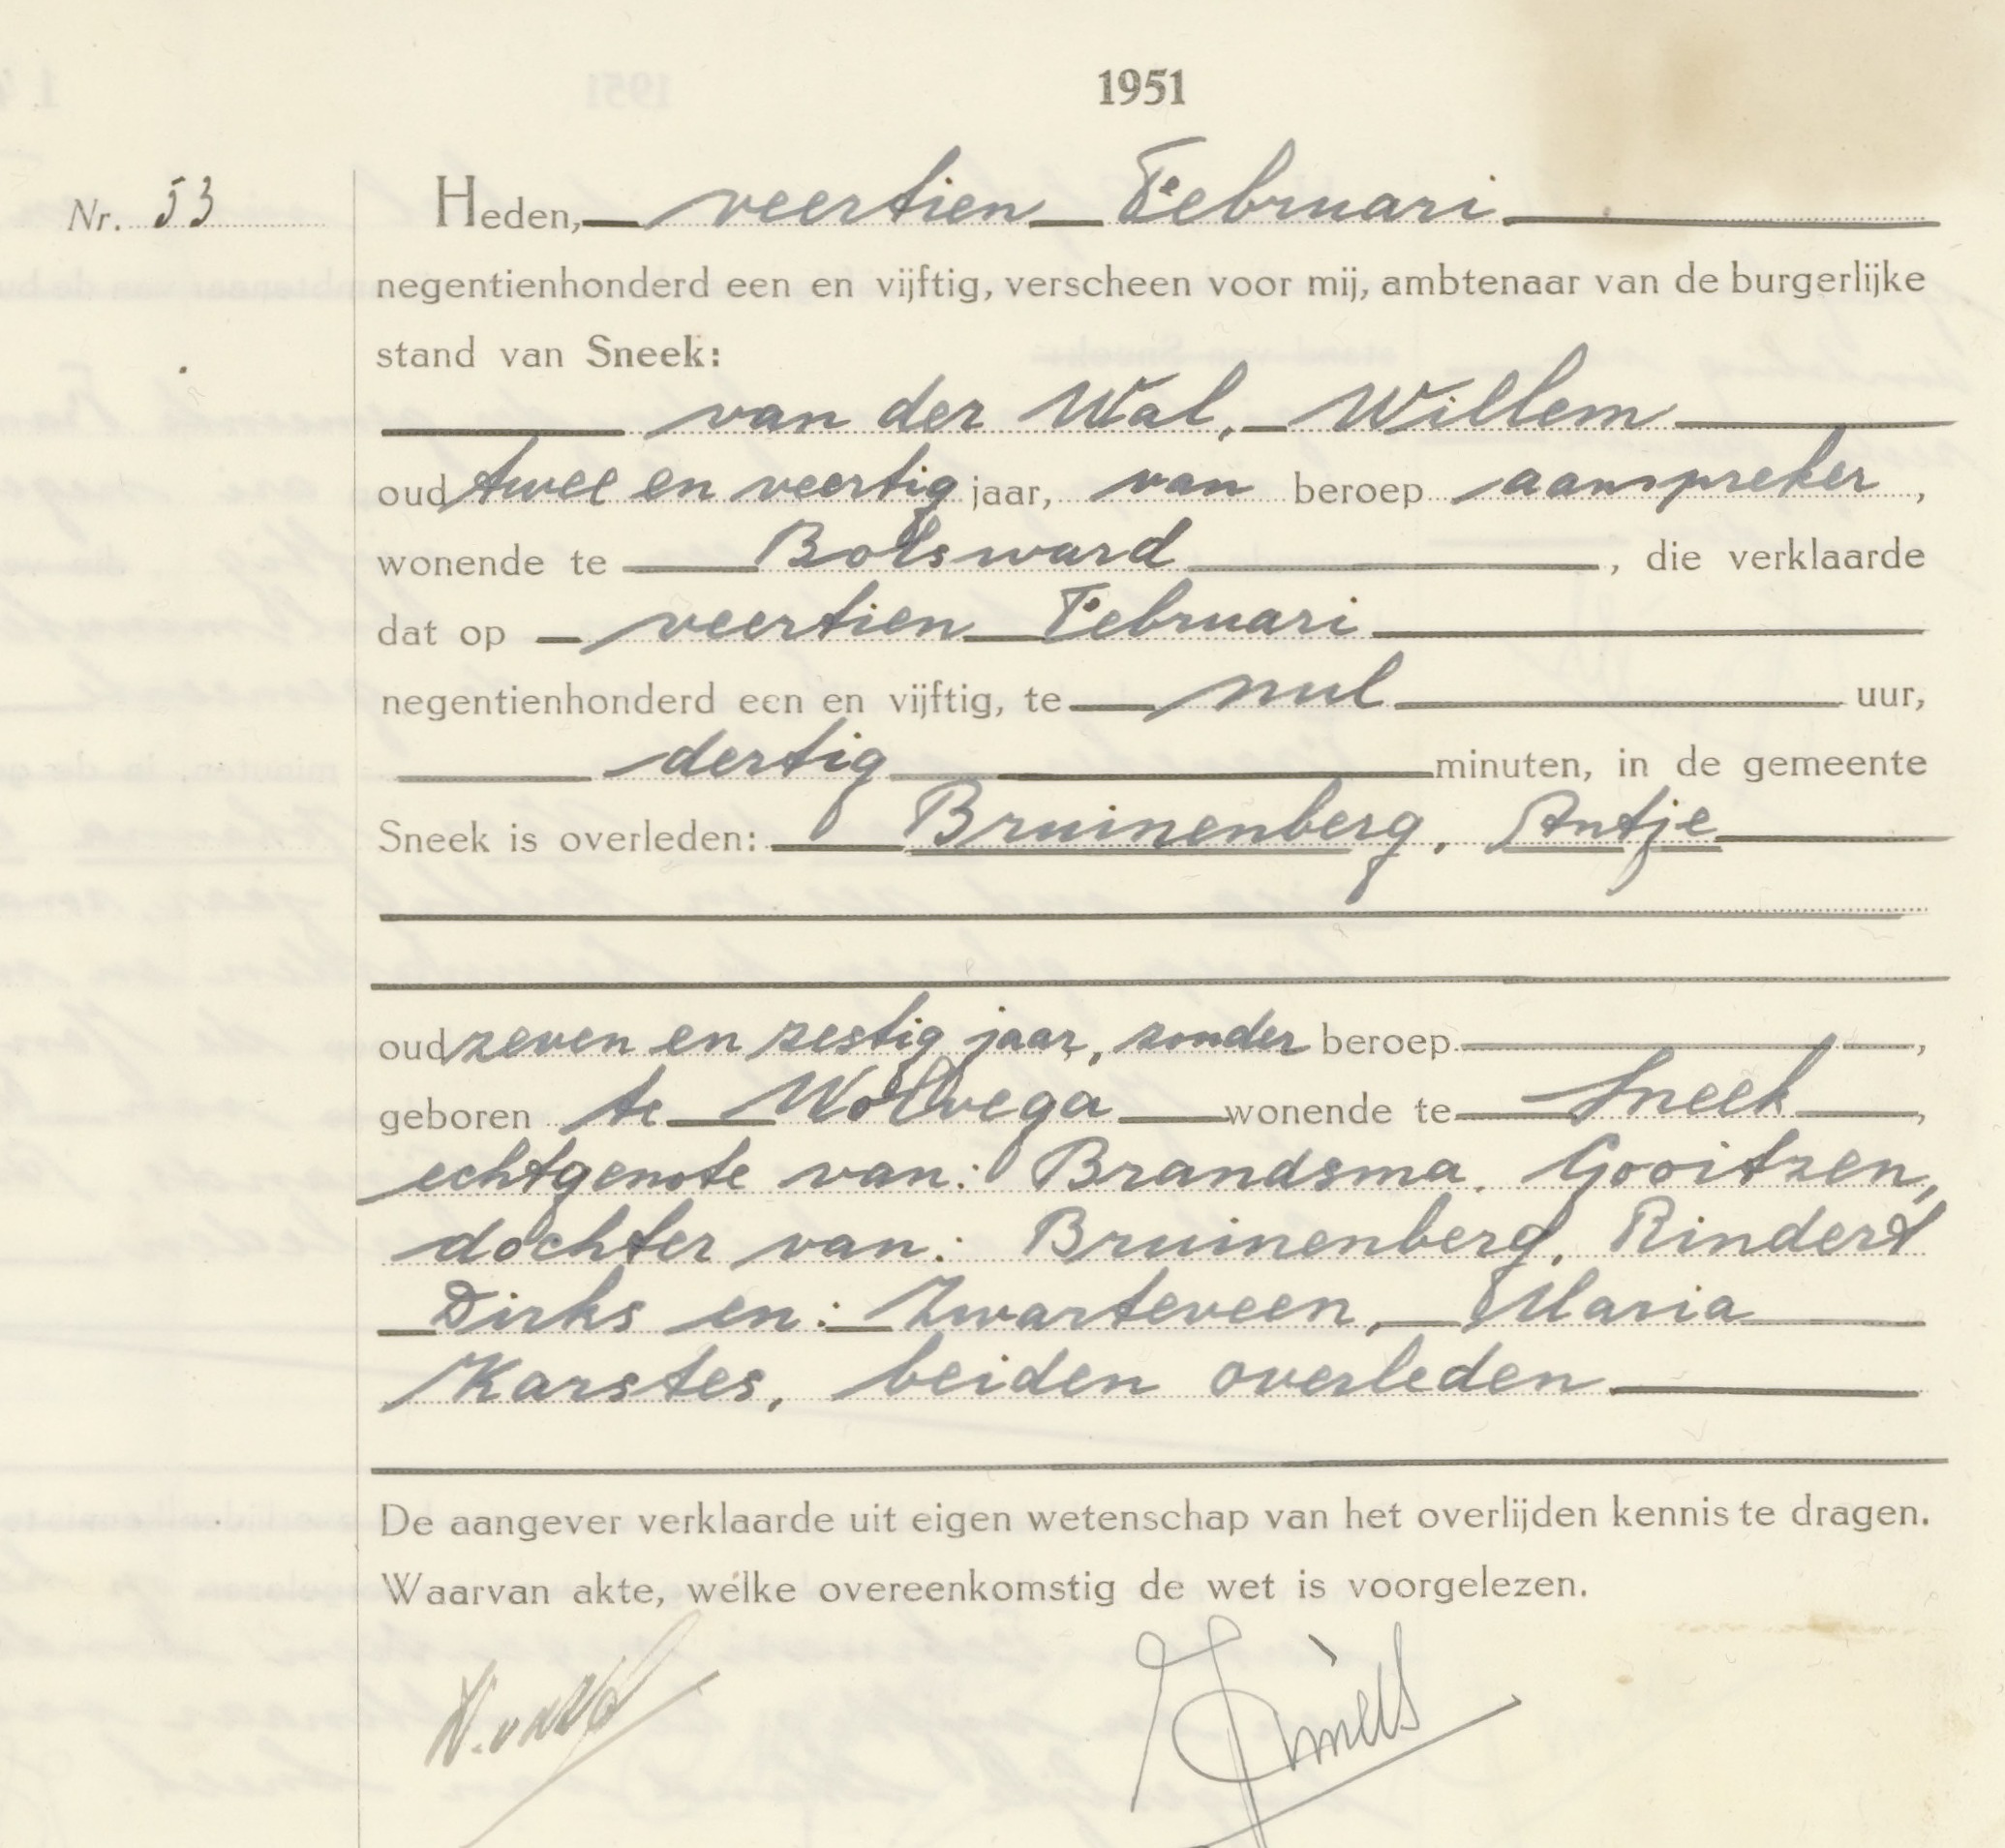 1951
Nr. 53
Heden, veertien Februari
negentienhonderd een en vijftig, verscheen voor mij, ambtenaar van de burgerlijke
stand van Sneek:
van der Wal, Willem
oud twee en veertig jaar, van beroep aanspreker,
wonende te Bolsward, die verklaarde
dat op veertien Februari
negentienhonderd een en vijftig, te nul uur,
dertig minuten, in de gemeente
Sneek is overleden: Bruinenberg, Antje
oud zeven en zestig jaar, zonder beroep,
geboren te Wolvega wonende te Sneek,
echtgenote van: Brandsma, Gooitzen,
dochter van: Bruinenberg, Rindert
Dirks en: Zwarteveen, Maria
Karstes, beiden overleden
De aangever verklaarde uit eigen wetenschap van het overlijden kennis te dragen.
Waarvan akte, welke overeenkomstig de wet is voorgelezen.